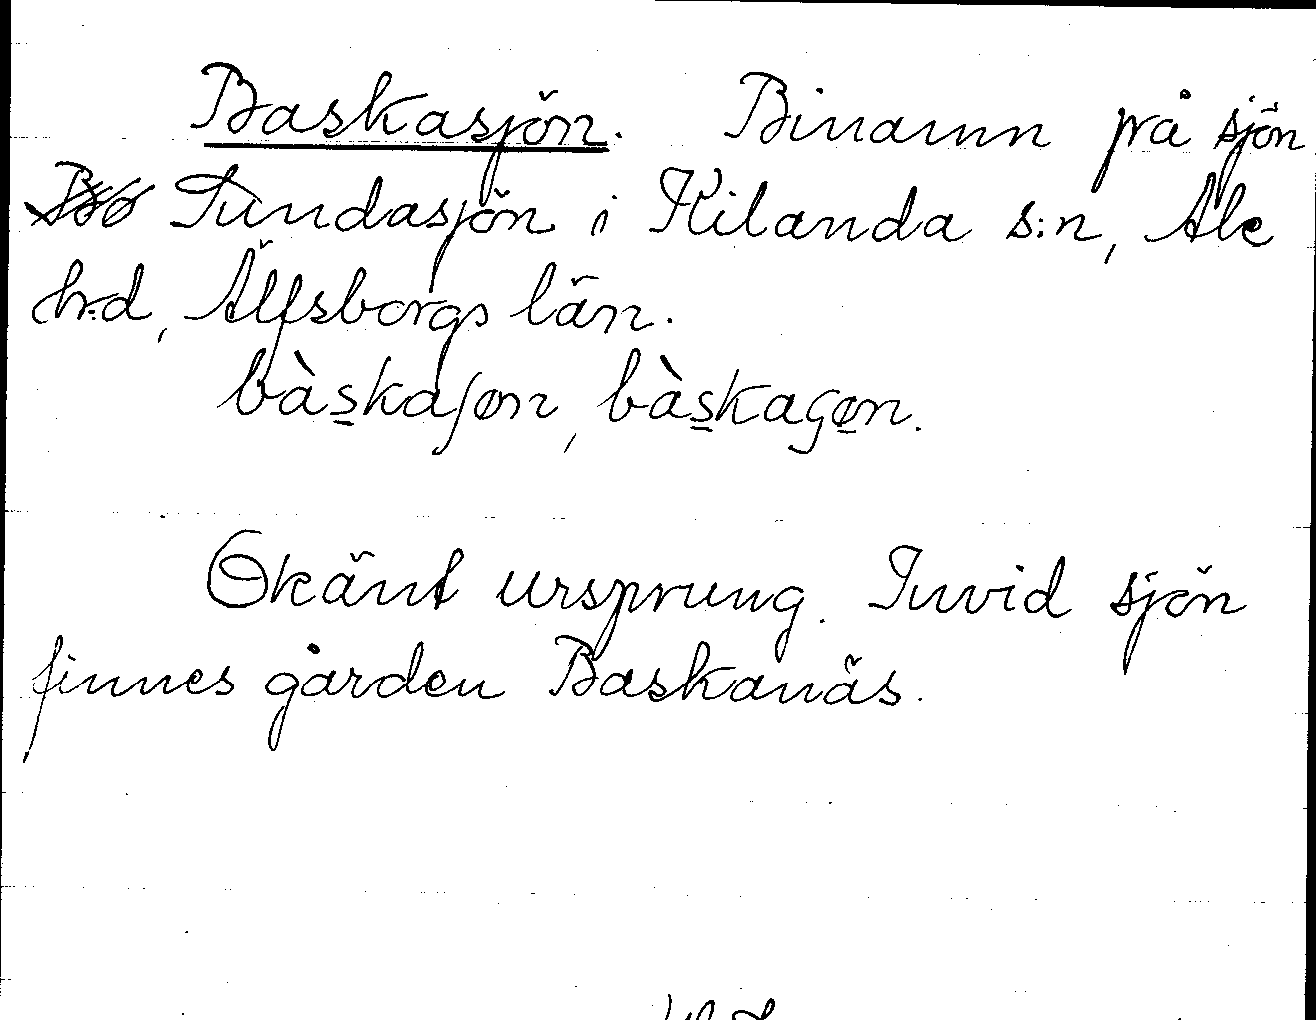 Baskasjön. Binamn på sjön
Tundasjön i Kilanda s:n, Ale
h:d, Älfsborgs län.
bàs̱kaʃøn, bàs̱kaçø̱n.
Okänt ursprung. Invid sjön
finnes gården Baskanäs.